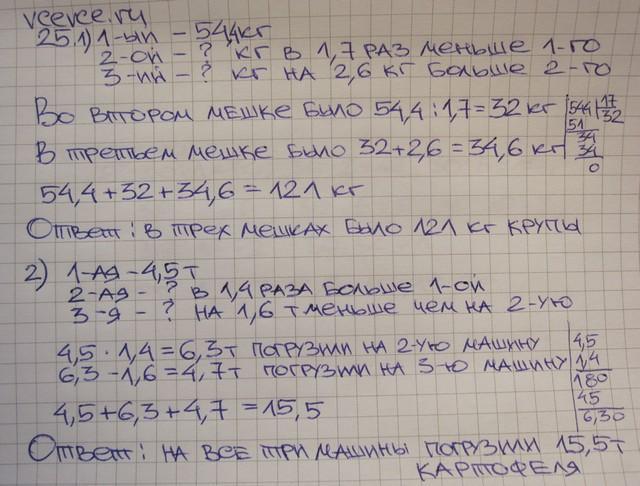 vcevce.ru
25.1) 1-ый – 54,4кг
2-ой – ? кг в 1,7 раз меньше 1-го
3-ий – ? кг на 2,6 кг больше 2-го
Во втором мешке было 54,4 : 1,7 = 32 кг
544 | 17
51 32
34
34
0
В третьем мешке было 32+2,6 = 34,6 кг
54,4 + 32 + 34,6 = 121 кг
Ответ: в трех мешках было 121 кг крупы
2) 1-ая – 4,5т
2-ая – ? в 1,4 раза больше 1-ой
3-я – ? на 1,6 т меньше чем на 2-ую
4,5 · 1,4 = 6,3т погрузили на 2-ую машину
6,3 – 1,6 = 4,7т погрузили на 3-ю машину
4,5
1,4
180
45
6,30
4,5 + 6,3 + 4,7 = 15,5
Ответ: на все три машины погрузили 15,5т
картофеля